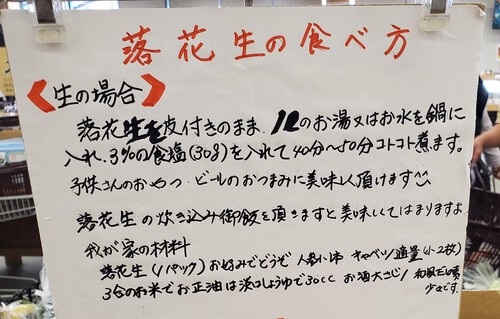 落花生の食べ方
《生の場合》
落花生を皮付きのまま、1ℓのお湯又はお水を鍋に
入れ、3%の食塩(30g)を入れて40分〜50分コトコト煮ます。
子供さんのおやつ・ビールのおつまみに美味しく頂けます
落花生の炊き込み御飯を頂きますと美味しくてはまりますよ
我が家の材料
落花生(1パック)お好みでどうぞ 人参小1本 キャベツ適量(小2枚)
3合のお米でお正油は淡口しょうゆで30cc お酒大さじ1 和風だしの素
少々です。